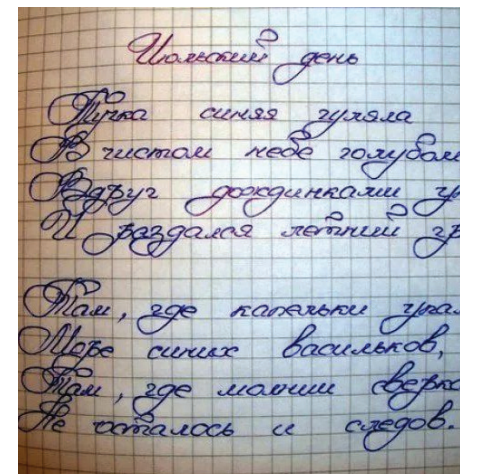 Июльский день
Тучка синяя гуляла
В чистом небе голубом
Вдруг дождинками уп
И раздался летний гр
Там, где капельки упал
Море синих васильков,
Там, где молнии сверка
Не осталось и следов.